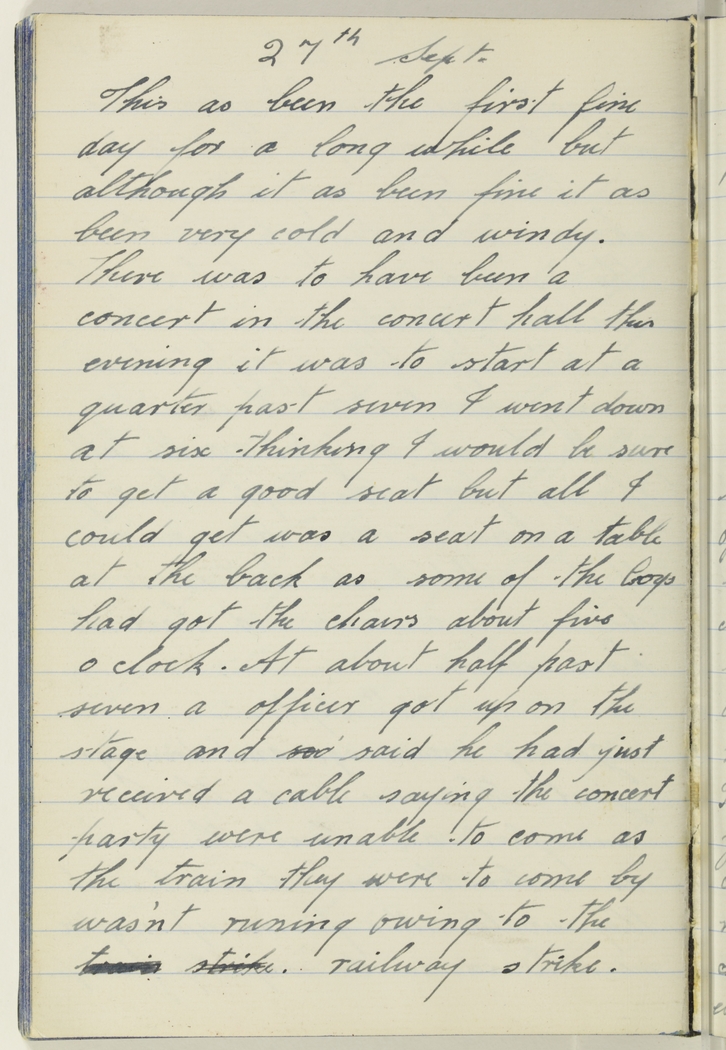 27th Sept.
This as been the first fine
day for a long while but
although it as been fine it as
been very cold and windy.
There was to have been a
concert in the concert hall this
evening it was to start at a
quarter past seven I went down
at six thinking I would be sure
to get a good seat but all I
could get was a seat on a table
at the back as some of the boys
had got the chairs about five
o clock. At about half past
seven a officer got up on the
stage and said he had just
received a cable saying the concert
party were unable to come as
the train they were to come by
wasn't runing owing to the
train strike. railway strike.